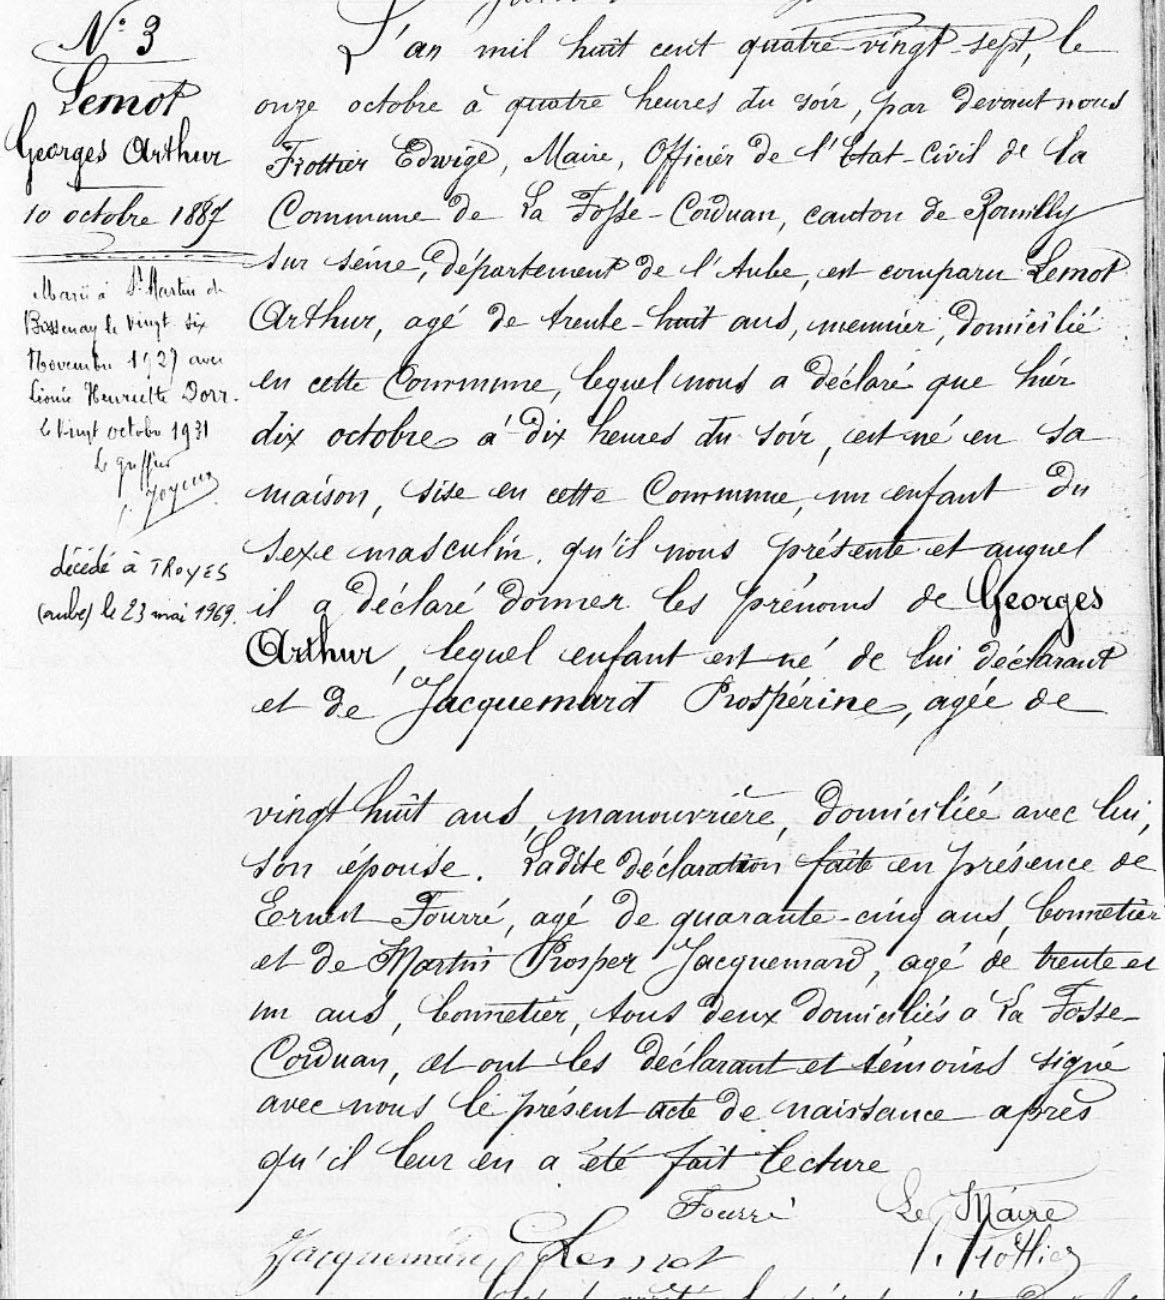 N° 3
Lemot
Georges Arthur
10 octobre 1887
Marié à St Martin de
Bossenay le vingt six
Novembre 1927 avec
Léonie Henriette Dorr.
le vingt octobre 1931
Le greffier
Joyeux
décédé à TROYES
(aube) le 23 mai 1969.
L'an mil huit cent quatre-vingt-sept, le
onze octobre à quatre heures du soir, par devant nous
Frottier Edwige, Maire, Officier de l'Etat-Civil de la
Commune de La Fosse-Corduan, canton de Romilly
sur seine, département de l'Aube, est comparu Lemot
Arthur, agé de trente-huit ans, meunier, domicilié
en cette Commune, lequel nous a déclaré que hier
dix octobre à dix heures du soir, est né en sa
maison, sise en cette Commune, un enfant du
sexe masculin qu'il nous présente et auquel
il a déclaré donner les prénoms de Georges
Arthur, lequel enfant est né de lui déclarant
et de Jacquemard Prospérine, agée de
vingt huit ans, manouvrière, domiciliée avec lui,
son épouse. Ladite déclaration faite en présence de
Ernest Fourré, agé de quarante-cinq ans, bonnetier
et de Martin Prosper Jacquemard, agé de trente et
un ans, bonnetier, tous deux domiciliés a La Fosse-
Corduan, et ont les déclarant et témoins signé
avec nous le présent acte de naissance après
qu'il leur en a été fait lecture
Fourré Le Maire
Jacquemard Lemot Frottier